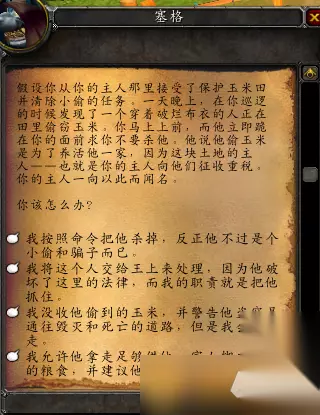 塞格
假设你从你的主人那里接受了保护玉米田
并清除小偷的任务。一天晚上，在你巡逻
的时候发现了一个穿着破烂布衣的人正在
田里偷窃玉米。你马上上前，而他立即跪
在你的面前求你不要杀他。他说他偷玉米
是为了养活他一家，因为这块土地的主
人——也就是你的主人向他们征收重税。
你的主人一向以此而闻名。
你该怎么办？
我按照命令把他杀掉，反正他不过是个
小偷和骗子而已。
我将这个人交给王上来处理，因为他破
坏了这里的法律，而我的职责就是把他
抓住。
我没收他偷到的玉米，并警告他
通往毁灭和死亡的道路，但是我
走。
我允许他拿走足够
的粮食，并建议他